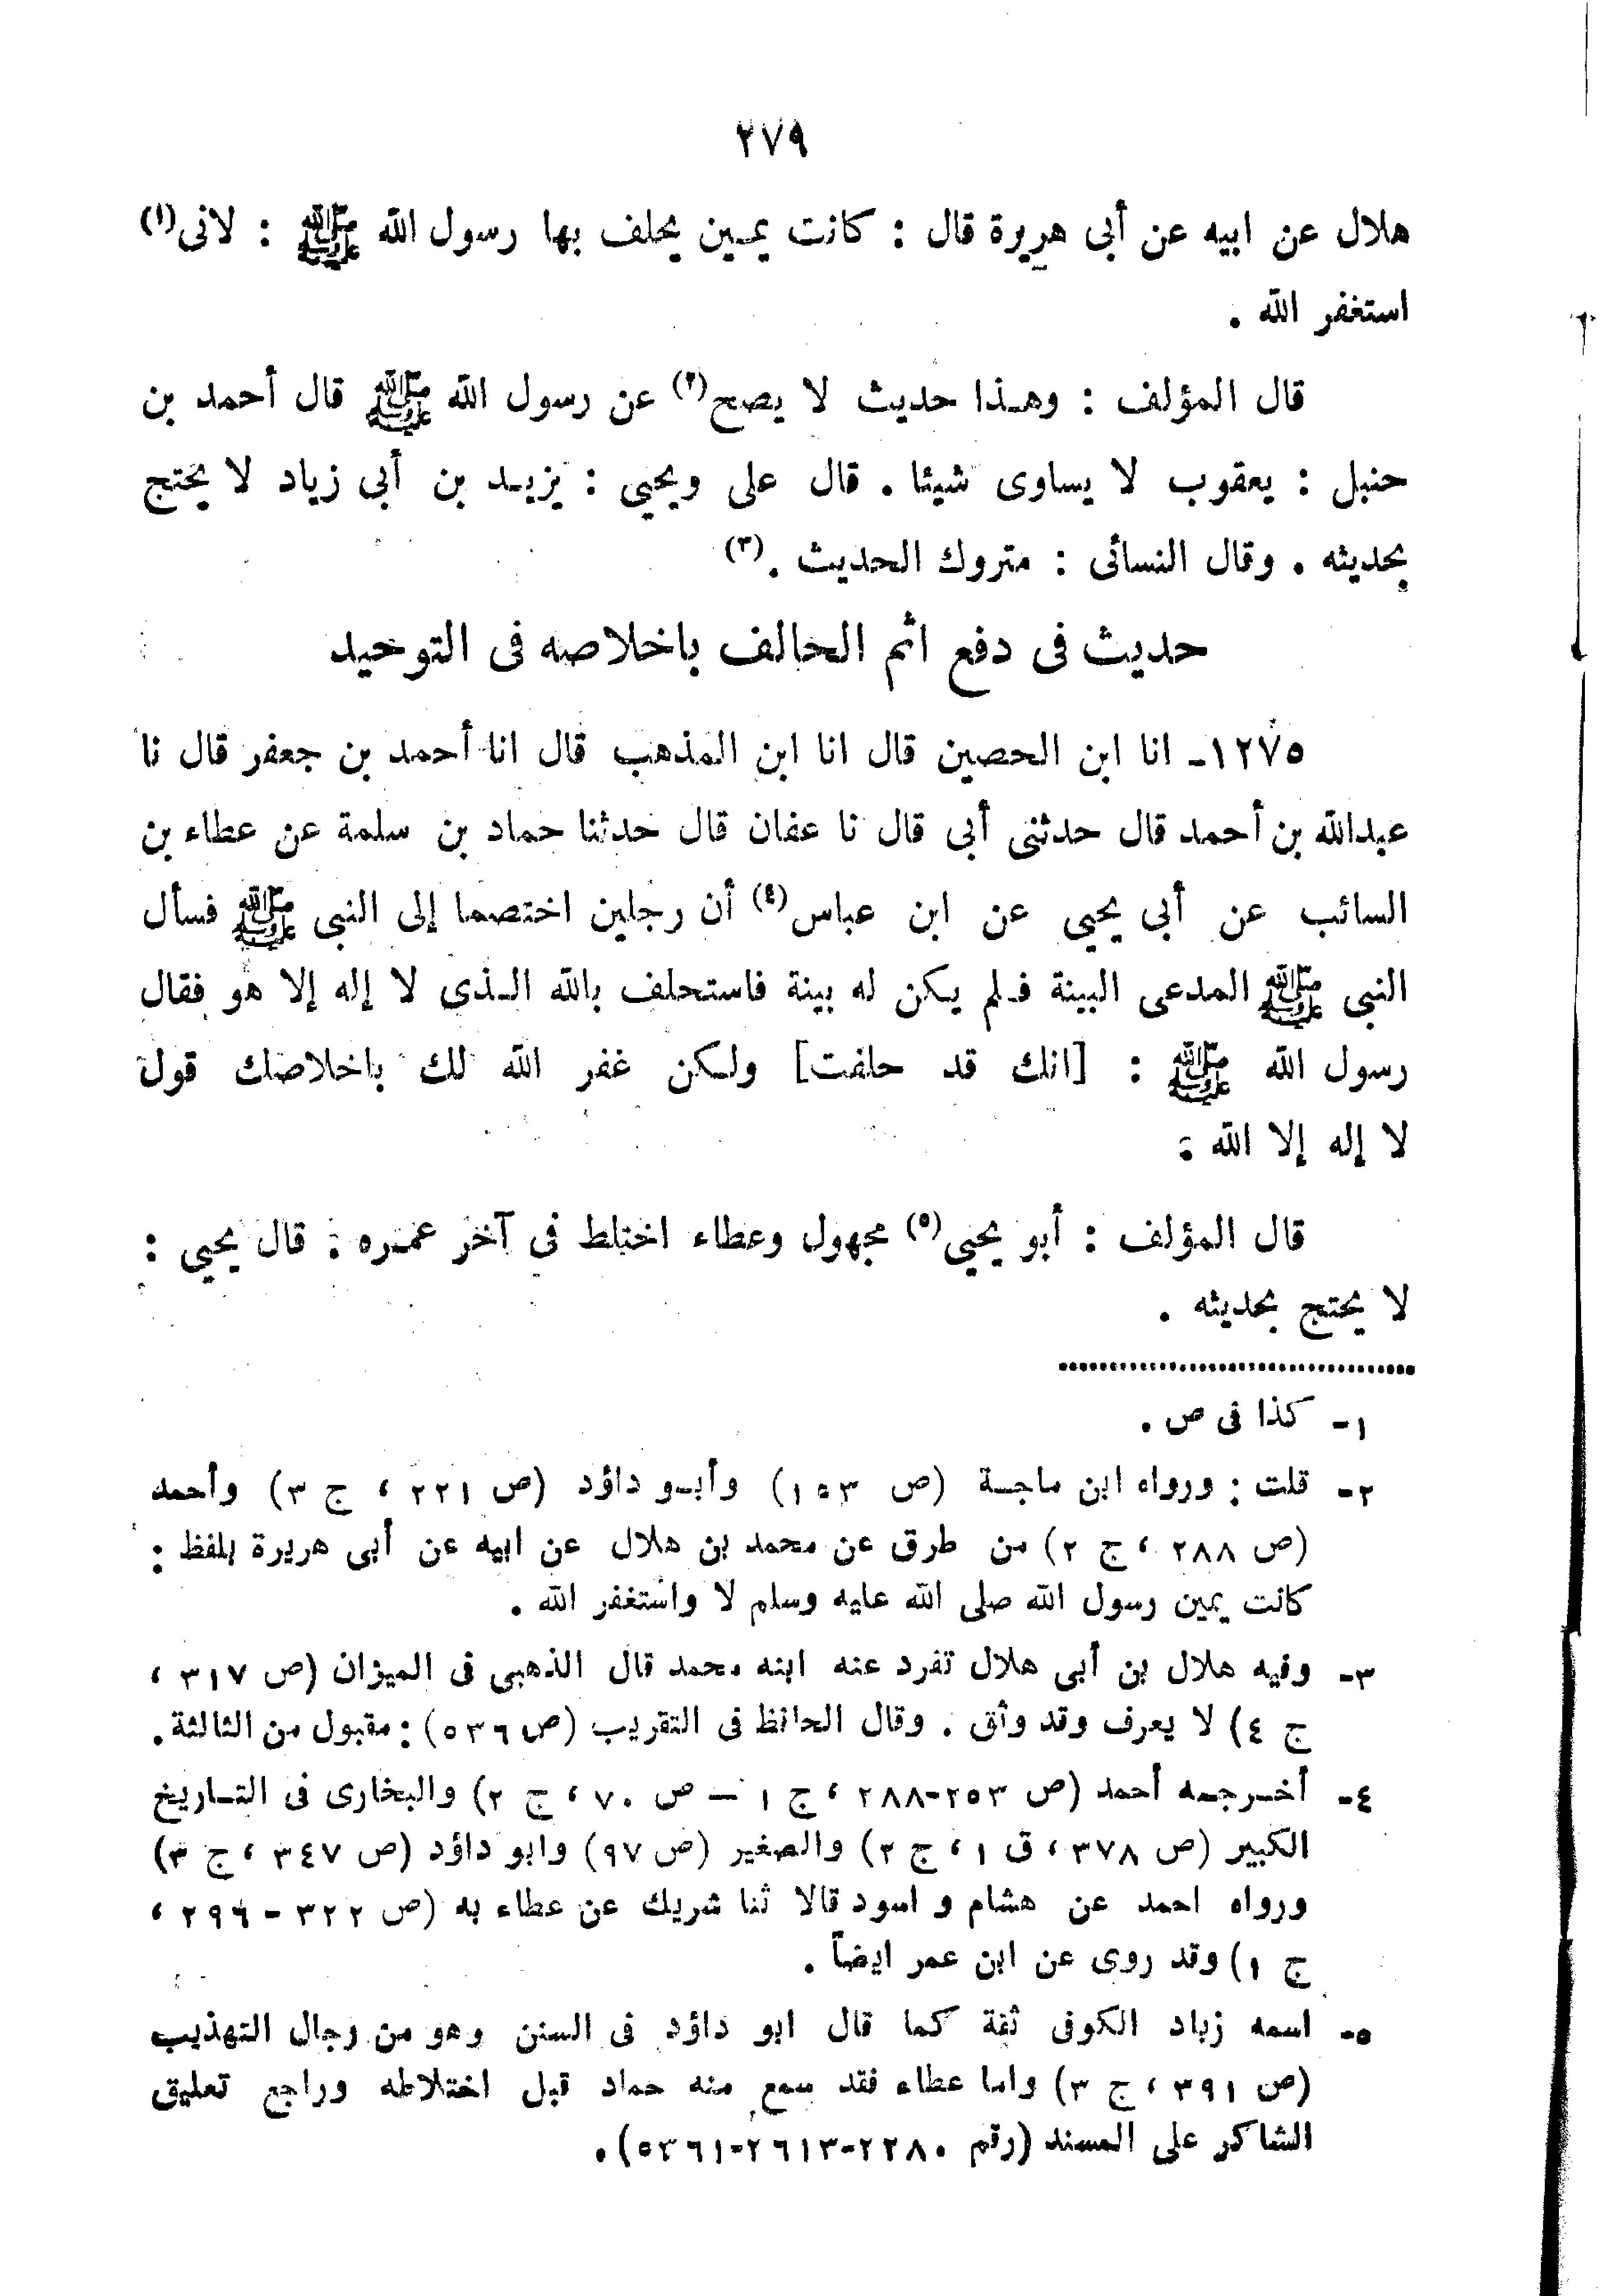 ٢٧٩
هلال عن ابيه عن أبى هريرة قال : كانت يمـين يحلف بها رسول الله ﷺ : لانى(١)
استغفر الله .
قال المؤلف : وهـذا حديث لا يصح(٢) عن رسول الله ﷺ قال أحمد بن
حنبل : يعقوب لا يساوى شيئا . قال على ويحيى : يزيـد بن أبى زياد لا يحتج
بحديثه . وقال النسائى : متروك الحديث .(٣)
حديث فى دفع اثم الحالف باخلاصه فى التوحيد
١٢٧٥ـ انا ابن الحصين قال انا ابن المذهب قال انا أحمد بن جعفر قال نا
عبدالله بن أحمد قال حدثنى أبى قال نا عفان قال حدثنا حماد بن سلمة عن عطاء بن
السائب عن أبى يحيى عن ابن عباس(٤) أن رجلين اختصما إلى النبى ﷺ فسأل
النبى ﷺ المدعى البينة فـلم يـكن له بينة فاستحلف بالله الـذى لا إله إلا هو فقال
رسول الله ﷺ : [انك قد حلفت] ولـكن غفر الله لك باخلاصك قول
لا إله إلا الله .
قال المؤلف : أبو يحيى(٥) مجهول وعطاء اختلط فى آخر عمـره . قال يحيى :
لا يحتج بحديثه .
١ـ كذا فى ص .
٢ـ قلت : ورواه ابن ماجـة (ص ١٥٣) وأبـو داؤد (ص ٢٢١ ، ج ٣) وأحمد
(ص ٢٨٨ ، ج ٢) من طرق عن محمد بن هلال عن ابيه عن أبى هريرة بلفظ :
كانت يمين رسول الله صلى الله عليه وسلم لا واستغفر الله .
٣ـ وفيه هلال بن أبى هلال تفرد عنه ابنه محمد قال الذهبى فى الميزان (ص ٣١٧ ،
ج ٤) لا يعرف وقد وثق . وقال الحافظ فى التقريب (ص ٥٣٦) : مقبول من الثالثة .
٤ـ أخـرجـه أحمد (ص ٢٥٣-٢٨٨ ، ج ١ – ص ٧٠ ، ج ٢) والبخارى فى التـاريخ
الكبير (ص ٣٧٨ ، ق ١ ، ج ٢) والصغير (ص ٩٧) وابو داؤد (ص ٣٤٧ ، ج ٣)
ورواه احمد عن هشام و اسود قالا ثنا شريك عن عطاء به (ص ٣٢٢ - ٢٩٦ ،
ج ١) وقد روى عن ابن عمر ايضاً .
٥ـ اسمه زياد الكوفى ثقة كما قال ابو داؤد فى السنن وهو من رجال التهذيب
(ص ٣٩١ ، ج ٣) واما عطاء فقد سمع منه حماد قبل اختلاطه وراجع تعليق
الشاكر على المسند (رقم ٢٢٨٠-٢٦١٣-٥٣٦١) .